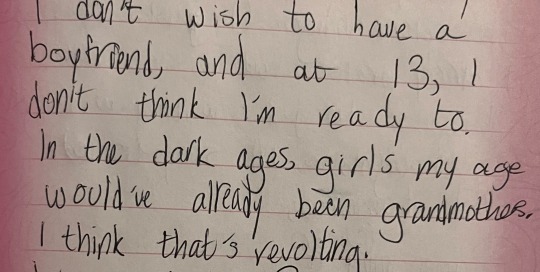 I don't wish to have a
boyfriend, and at 13, I
don't think I'm ready to.
In the dark ages, girls my age
would've already been grandmothers.
I think that's revolting.